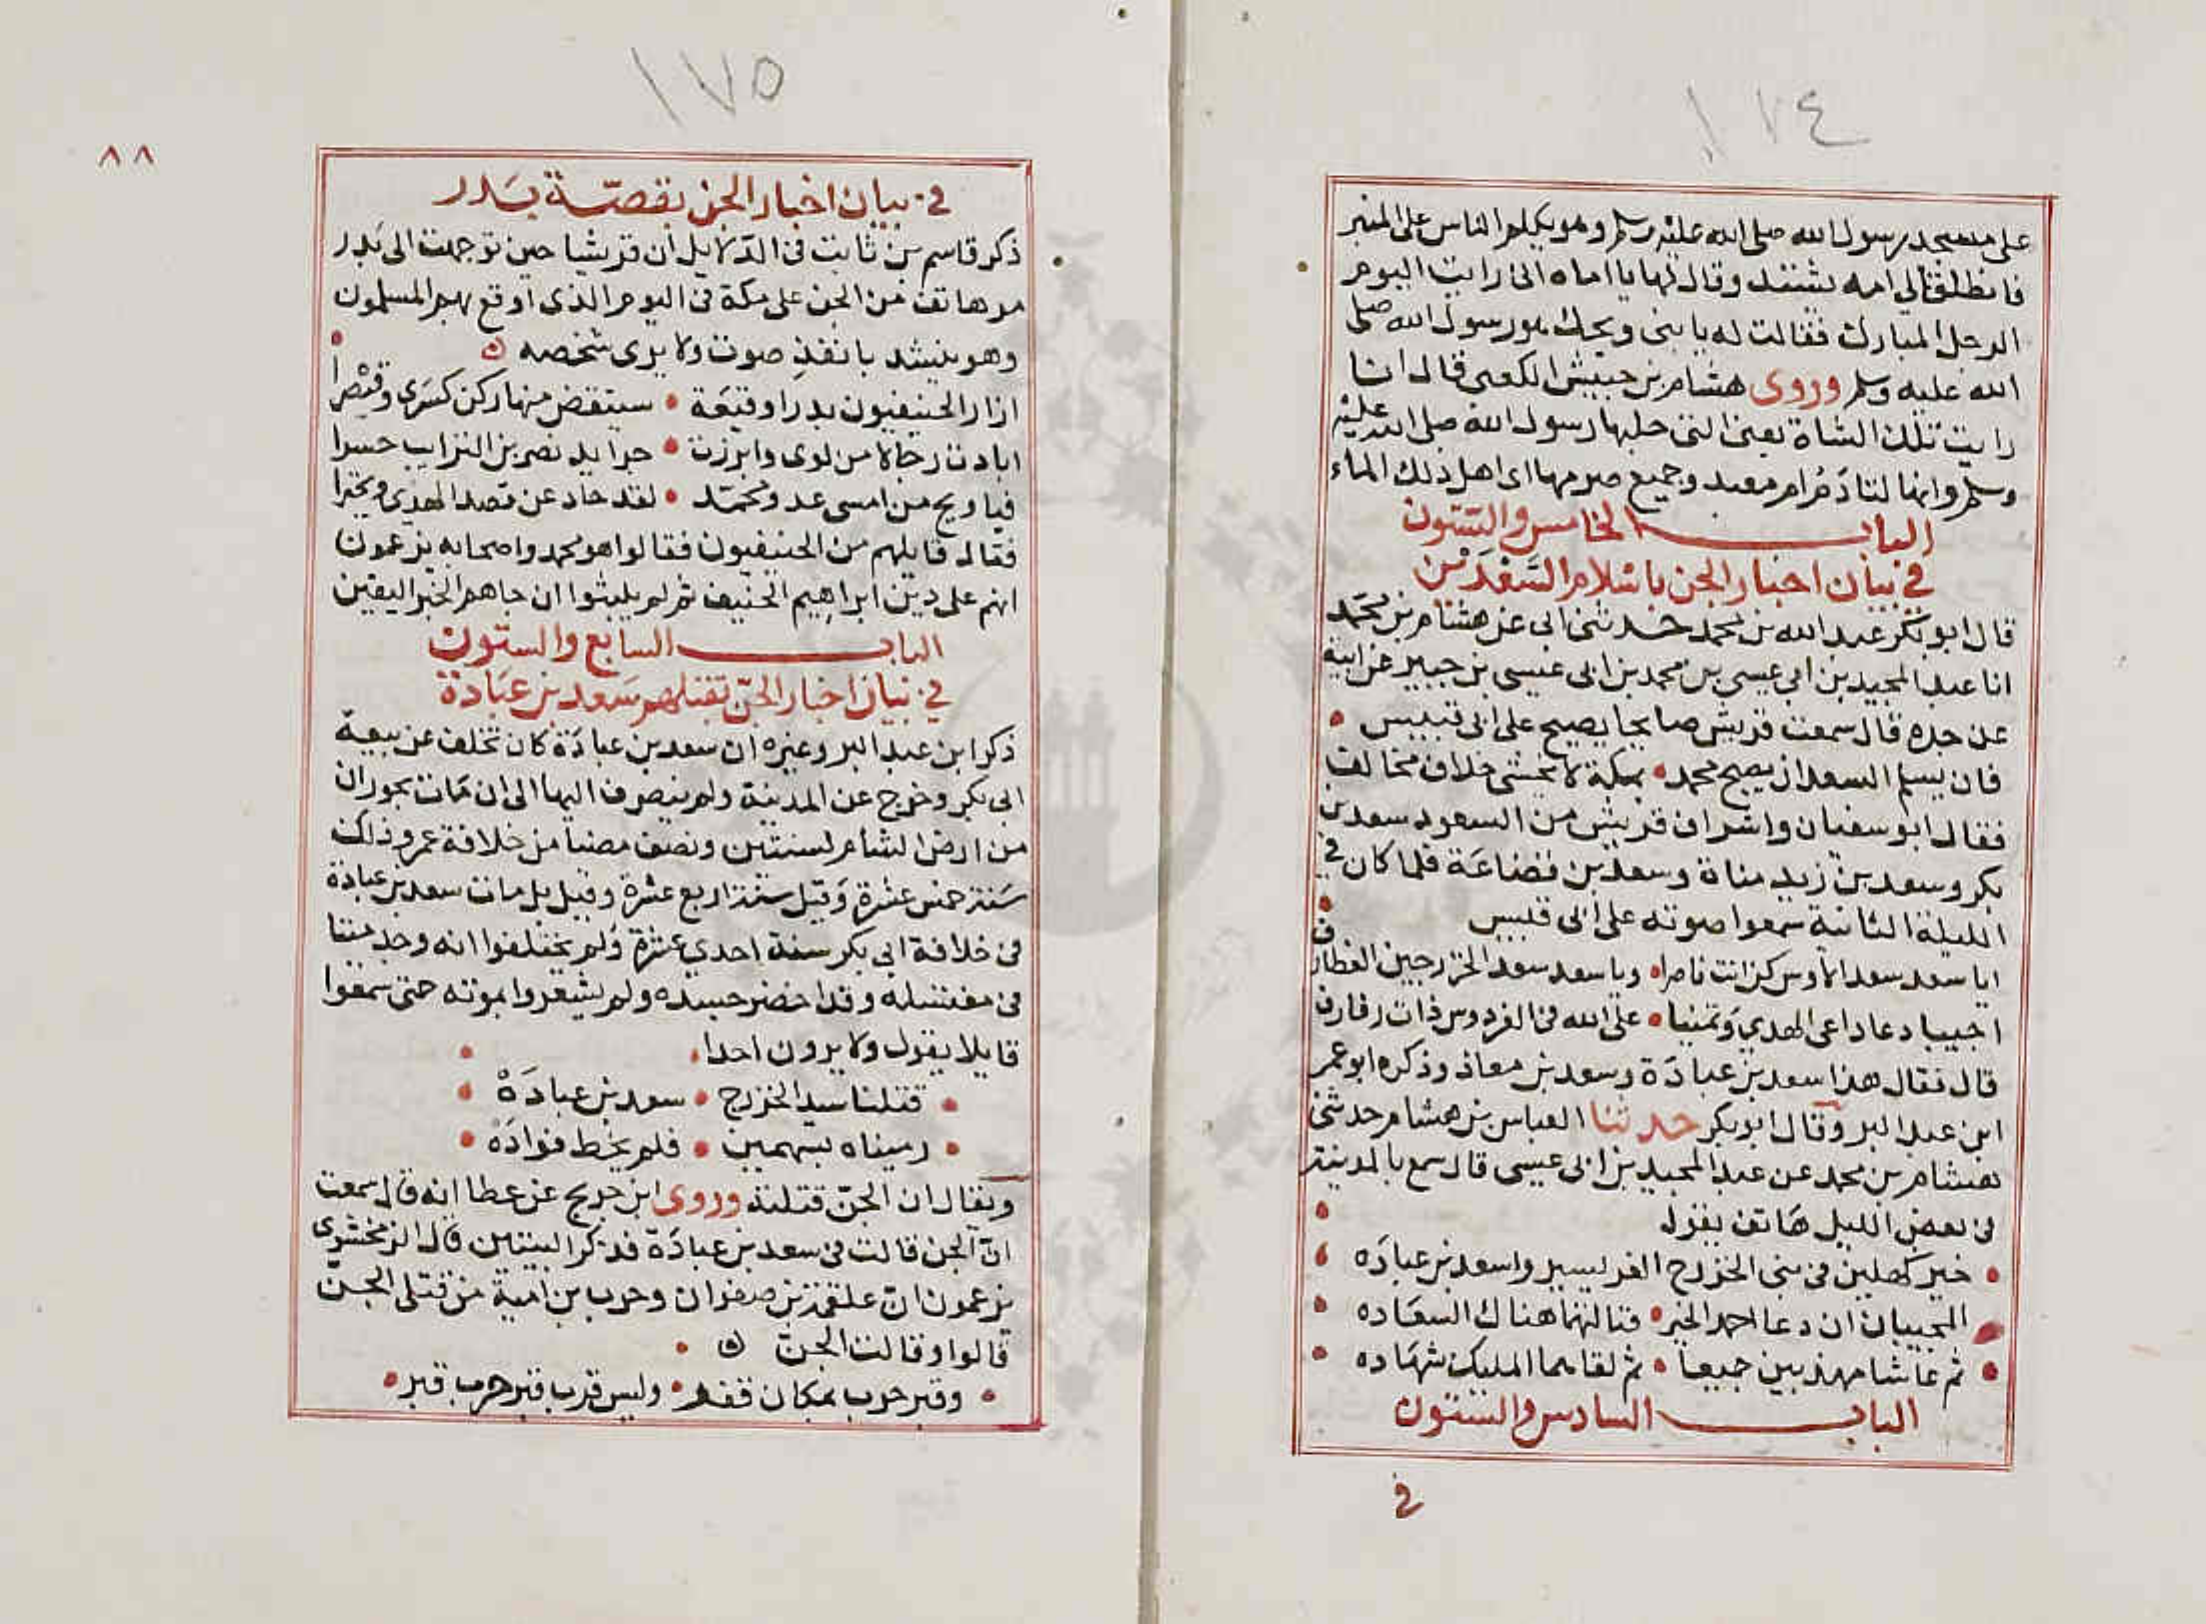 ١٧٤
على مسجد رسول الله صلى الله عليه وسلم وهو يكلم الناس على المنبر
فانطلق الي امه يشتد وقال لها يا اماه انى رايت اليوم
الرجل المبارك فقالت له يا بنى ويحك هو رسول الله صلى
الله عليه وسلم وروى هشام بن حبيش الكعبى قال انا
رايت تلك الشاة يعنى التى حلبها رسول الله صلى الله عليه
وسلم وانها لتادم ام معبد وجميع صرمها اى اهل ذلك الماء
الباب الخامس والستون
في بيان اخبار الجن باسلام السعدين
قال ابو بكر عبد الله بن محمد حدثنى ابى عن هشام بن محمد
انا عبد المجيد بن ابي عيسى بن محمد بن ابى عيسى بن جبير عن ابيه
عن جده قال سمعت قريش صايحا يصيح على ابى قبيس
فان يسلم السعدان يصبح محمد بمكة لا يخشى خلاف مخالف
فقال ابو سفيان واشراف قريش من السعود سعد بن
بكر وسعد بن زيد مناة وسعد بن قضاعة فلما كان في
الليلة الثانية سمعوا صوته على ابى قبيس
ايا سعد سعد الاوس كن انت ناصرا ويا سعد سعد الخزرجين الغطارف
اجيبا دعا داعى الهدي وتمنيا على الله فى الفردوس ذات رفارف
قال فقال هذا سعد بن عبادة وسعد بن معاذ وذكره ابو عمر
ابن عبد البر وقال ابو بكر حدثنا العباس بن هشام حدثنى
هشام بن محمد عن عبد المجيد بن ابى عيسى قال سمع بالمدينة
فى بعض الليل هاتف يقول
خير كهلين فى بنى الخزرج الغر ليسير واسعد بن عباده
المجيبان ان دعا احمد الخير فنالتهما هناك السعاده
ثم عاشا مهذبين جميعا ثم لقاهما المليك شهاده
الباب السادس والستون
في
١٧٥
٨٨
في بيان اخبار الجن بقصة بدر
ذكر قاسم بن ثابت فى الدلايل ان قريشا حين توجهت الى بدر
مر هاتف من الجن على مكة فى اليوم الذى اوقع بهم المسلمون
وهو ينشد بانفذ صوت ولا يرى شخصه
ازار الحنيفيون بدرا وقيعة سينقض منها ركن كسرى وقيصرا
ابادت رجالا من لوى وابرزت حرايد نصر بن الترايب حسرا
فيا ويح من امسى عدو محمد لقد حاد عن قصد الهدى وتحيرا
فقال قايلهم من الحنيفيون فقالوا هو محمد واصحابه يزعمون
انهم على دين ابراهيم الحنيف ثم لم يلبثوا ان جاهم الخبر اليقين
الباب السابع والستون
في بيان اخبار الجن بقتلهم سعد بن عبادة
ذكر ابن عبد البر وغيره ان سعد بن عبادة كان تخلف عن بيعة
ابى بكر وخرج عن المدينة ولم ينصرف اليها الى ان مات بحوران
من ارض الشام لسنتين ونصف مضيا من خلافة عمر وذلك
سنة خمس عشرة وقيل سنة اربع عشرة وقيل بل مات سعد بن عبادة
فى خلافة ابي بكر سنة احدي عشرة ولم يختلفوا انه وجد ميتا
فى مغتسله وقد اخضر جسده ولم يشعروا بموته حتى سمعوا
قايلا يقول ولا يرون احدا
قتلنا سيد الخزرج سعد بن عبادة
رميناه بسهمين فلم يخط فواده
ويقال ان الجن قتلته وروى ابن جريج عن عطا انه قال سمعت
ان الجن قالت فى سعد بن عبادة فذكر البيتين قال الزمخشرى
يزعمون ان علقمة بن صفوان وحرب بن امية من قتلى الجن
قالوا وقالت الجن
وقبر حرب بمكان قفر وليس قرب قبر حرب قبر